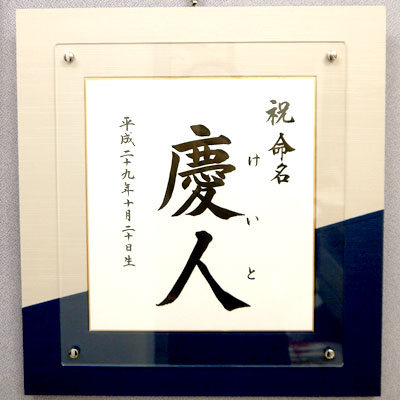 祝命名
けいと
慶人
平成二十九年十月二十日生